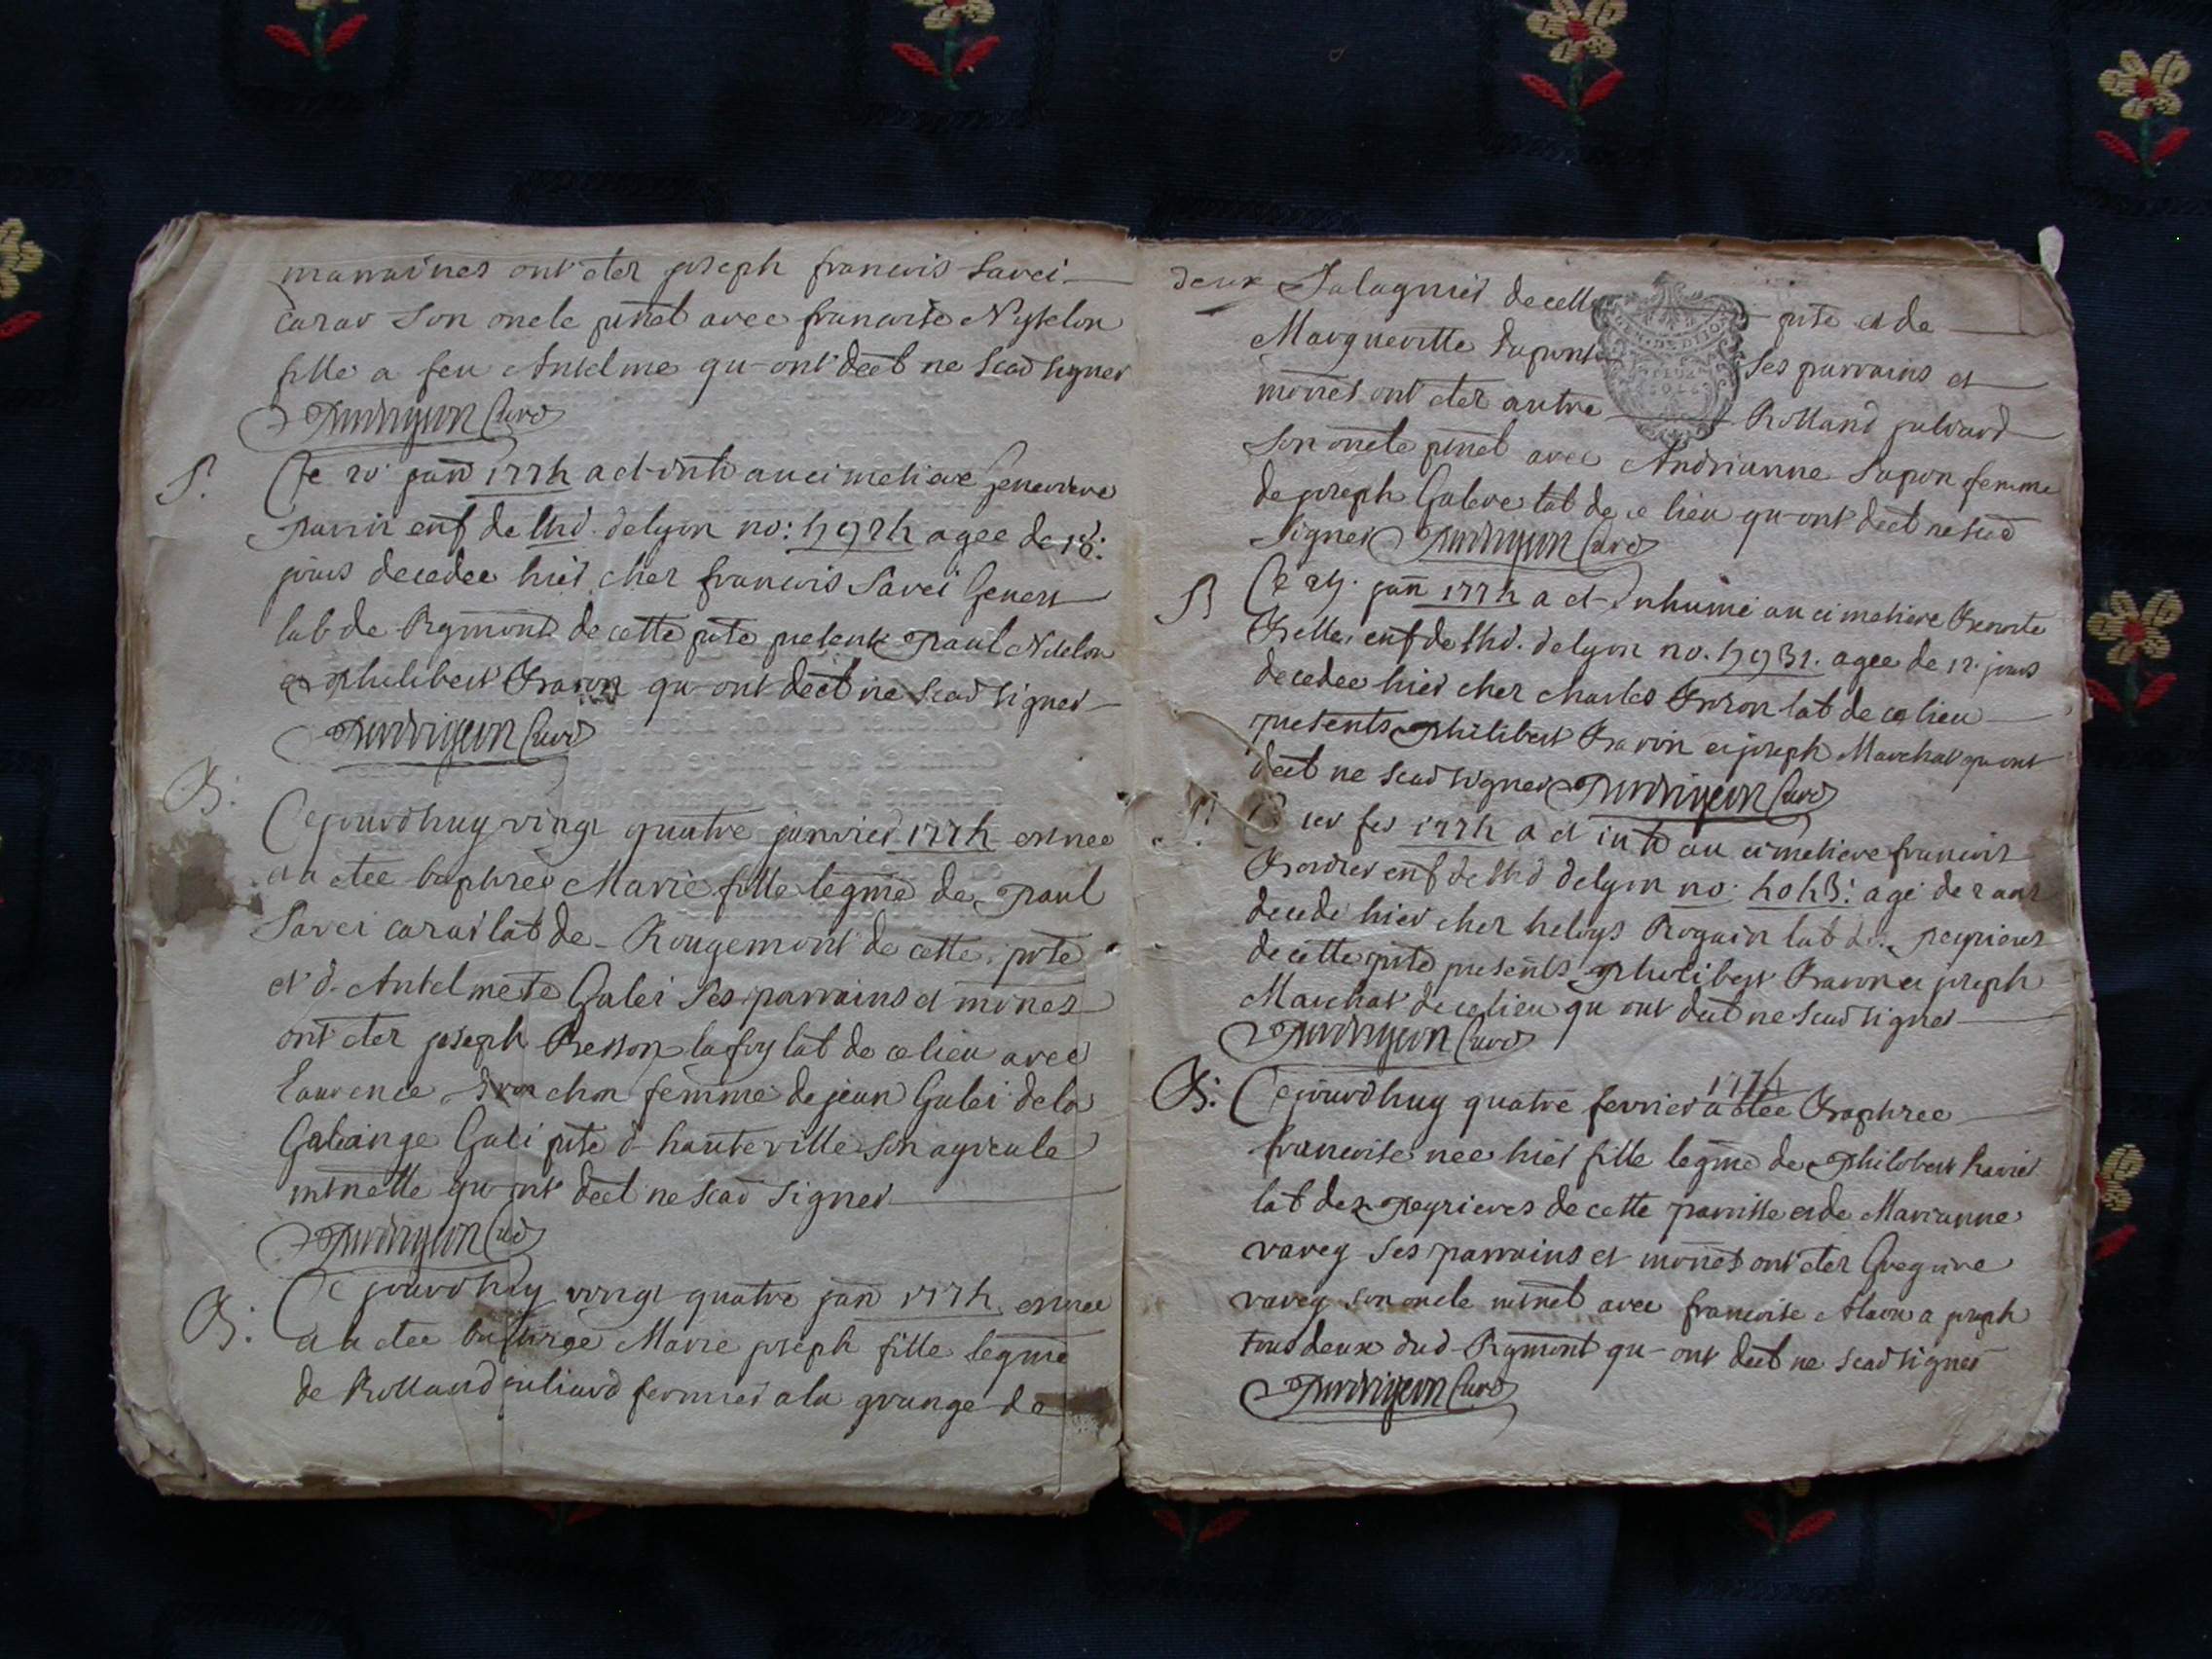 marraines ont eter joseph francois Savei
Carar son oncle pñel avec francoise Nyselon
fille a feu Antelme qu-ont decl ne scad signer
Curé
S.
Ce 20 janõ 1774 a et inh au cimetiere Genevieve
enf de lhd. de lyon no: 4974 agee de 18:
jours decedee hier cher francois Savei Genest
lab de Rgmont de cette pste present Paul Niselon
et philibert Baron qu-ont decl ne scad signer
Curé
B:
Cejourdhuy vingt quatre janvier 1774 est nee
a etee baptizee Marie fille legme de Paul
Savei carar lab de Rougemont de cette pste
et d. Antelmete Galei Ses parrains et mõnes
ont eter joseph Besson lafoy lab de ce lieu avec
laurence femme de jean Galei de la
Gali pste d hauteville son ayeule
mñelle qu-ont decl ne scad signer
Curé
B:
Cejourdhuy vingt quatre janõ 1774 est nee
a etee Marie joseph fille legme
de Rolland juliard fermier a la grange de
deux Salagnier de cette pste et de
Margueritte Dupont Ses parrains et
mõnes ont eter autre Rolland juliard
son oncle pñel avec Andrianne Dupon femme
de joseph Galere lab de ce lieu qu-ont decl ne scad
signer Curé
S
Ce 25. jañ 1774 a et inhumé au cimetiere Benoite
enf de lhd. de lyon no. 4931. agee de 12. jours
decedee hier cher charles lab de ce lieu
presents philibert Baron et joseph Marchat qu ont
decl ne scad signer Curé
S.
1er fev 1774 a et inh au cimetiere francois
Bordier enf de lhd de lyon no: 4043: agé de 2 ans
decede hier cher heloys Rogain lab de peyrieres
de cette pste presents philibert Baron et joseph
Marchat de ce lieu qu ont decl ne scad signer
Curé
B:
Cejourdhuy quatre fevrier 1774 a etee Baptizee
francoise nee hier fille legme de philibert Savei
lab des peyrieres de cette parroisse et de Marianne
varey Ses parrains et mõnes ont eter Gregoire
varey son oncle mñel avec francoise a joseph
tous deux dud Rgmont qu-ont decl ne scad signer
Curé